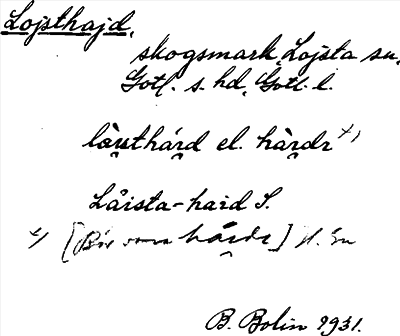 Lojsthajd,
skogsmark, Lojsta sn,
Gotl. s. hd, Gotl. l.
làusthárd el. hàrdr x)
Låista-haid S.
x) [Bör vara hárdr]
B. Bolin 1931.